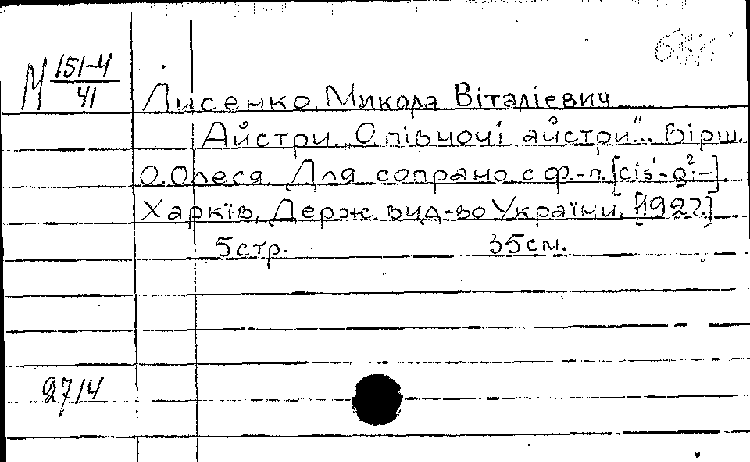 М 151-4
41
Лисенко, Микола Віталієвич
Айстри „Опівночі айстри". Вірш
О. Олеся. Для сопрано с ф.-п. [cis¹-g²-].
Харків, Держ. вид-во України, [192?]
5 стр. 35 см.
2714